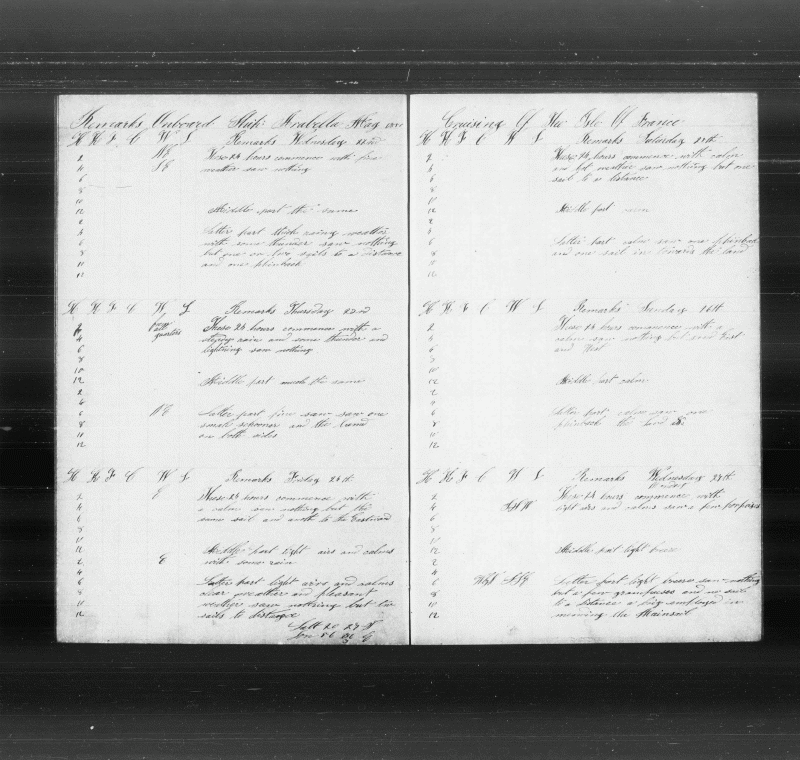 Remarks Onboard Ship Arabella May
H H F C W L Remarks Wednesday
2 NE These 24 hours commence with fine
4 SE weather saw nothing
6
8
10
12 Middle part the same
2
4 Latter part thick rainy weather
6 with some thunder saw nothing
8 but one or two sails to a distance
10 and one
12
H H F C W L Remarks Thursday
2 from These 24 hours commence with a
4 all quarters rain and some thunder and
6 lightning saw nothing
8
10
12 Middle part much the same
2
4
6 NE Latter part fine saw saw one
8 small schooner and the land
10 on both sides
12
H H F C W L Remarks Friday
2 E These 24 hours commence with
4 a calm saw nothing but the
6 same sail and another to the Eastward
8
10
12 Middle part light airs and calms
2 E with some rain
4
6 Latter part light airs and calms
8 clear weather and pleasant
10 saw nothing but two
12 sails to distance
Latt 20 27 N
86
Cruising Of The Isle Of
H H F C W L Remarks Saturday
2 These 24 hours commence with calm
4 and weather saw nothing but one
6 sail to a distance
8
10
12 Middle part
2
4
6 Latter part calm saw one
8 and one sail in towards the land
10
12
H H F C W L Remarks Sunday 26th
2 These 24 hours commence with a
4 calm saw nothing but
6 and
8
10
12 Middle part calm
2
4
6 Latter part calm saw one
8 the land
10
12
H H F C W L Remarks Wednesday
2 These 24 hours commence with
4 light airs and calms saw a few porpoises
6
8
10
12 Middle part light breeze
2
4
6 Latter part light breeze saw nothing
8 but a few grampuses and
10 to a distance employed in
12 mending the Mainsail